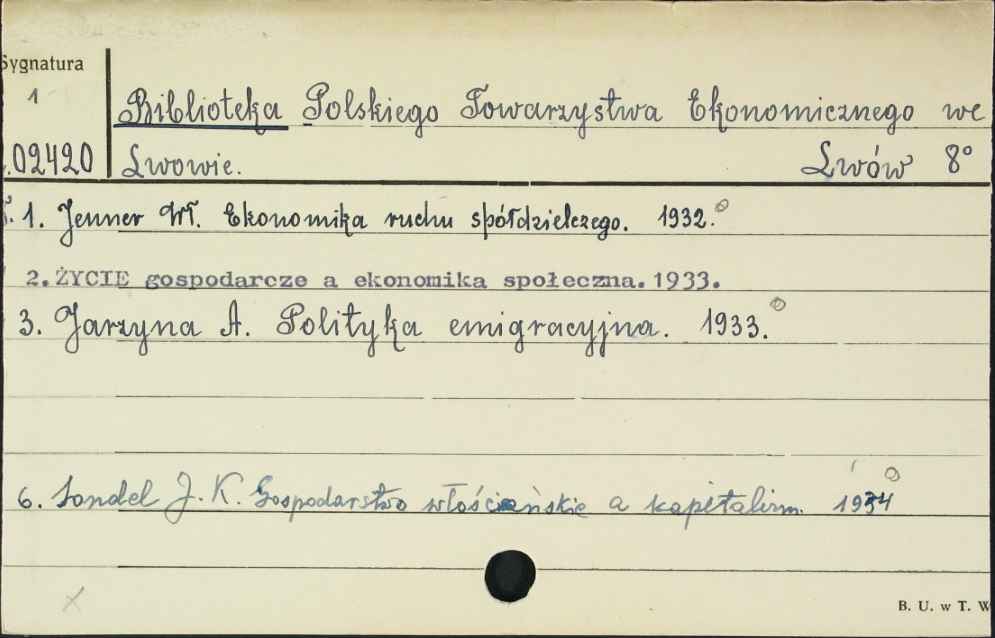 Sygnatura
1
Biblioteka Polskiego Towarzystwa Ekonomicznego we
.02420 Lwowie. Lwów 8°
1. Jenner Wł. Ekonomika ruchu spółdzielczego. 1932.
2. ŻYCIE gospodarcze a ekonomika społeczna. 1933.
3. Jarzyna A. Polityka emigracyjna. 1933.
6. Sondel J. K. Gospodarstwo włościańskie a kapitalizm. 1934
B. U. w T. W